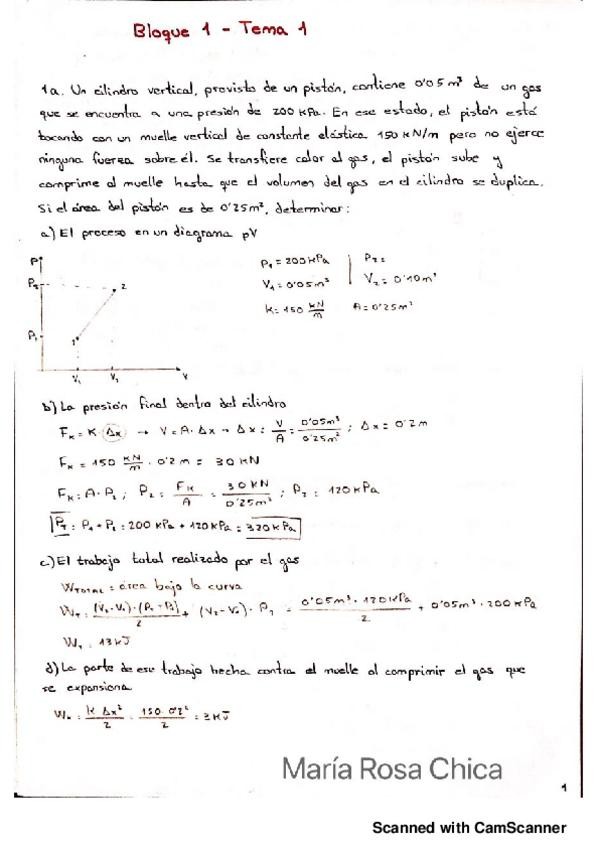 Bloque 1 - Tema 1
1a. Un cilindro vertical, provisto de un pistón, contiene 0'05 m³ de un gas
que se encuentra a una presión de 200 kPa. En ese estado, el pistón está
tocando con un muelle vertical de constante elástica 150 kN/m pero no ejerce
ninguna fuerza sobre él. Se transfiere calor al gas, el pistón sube y
comprime al muelle hasta que el volumen del gas en el cilindro se duplica.
Si el área del pistón es de 0'25m², determinar:
a) El proceso en un diagrama pV
P
P₂
2
P₁
1
V₁
V₂
V
P₁ = 200 kPa
P₂ =
V₁ = 0'05m³
V₂ = 0'10m³
k = 150 kN/m
A = 0'25m²
b) La presión final dentro del cilindro
Fₖ = K · Δx → V = A · Δx → Δx = V/A = 0'05m³/0'25m² ; Δx = 0'2m
Fₖ = 150 kN/m · 0'2m = 30 KN
Fₖ = A · P₂ ; P₂ = Fₖ/A = 30KN/0'25m² ; P₂ = 120 kPa
P_T = P₁ + P₂ = 200 kPa + 120 kPa = 320 kPa
c) El trabajo total realizado por el gas
W_TOTAL = área bajo la curva
W_T = (V₂-V₁)·(P₂-P₁)/2 + (V₂-V₁) · P₁ = 0'05m³ · 120kPa/2 + 0'05m³ · 200kPa
W_T = 13KJ
d) La parte de ese trabajo hecha contra el muelle al comprimir el gas que
se expansiona
Wₖ = k Δx²/2 = 150·0'2²/2 = 3KJ
María Rosa Chica
1
Scanned with CamScanner